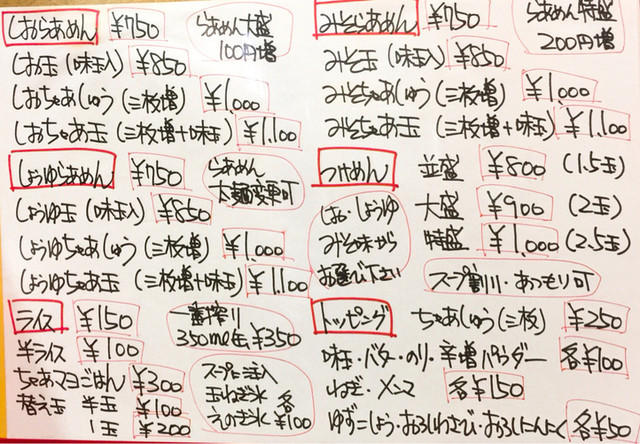 しおらあめん ¥750
らあめん大盛
100円増
しお玉(味玉入) ¥850
しおちゃあしゅう(三枚増) ¥1,000
しおちゃあ玉(三枚増+味玉) ¥1,100
しょうゆらあめん ¥750
らあめん
太麺変更可
しょうゆ玉(味玉入) ¥850
しょうゆちゃあしゅう(三枚増) ¥1,000
しょうゆちゃあ玉(三枚増+味玉) ¥1,100
ライス ¥150
半ライス ¥100
ちゃあマヨごはん ¥300
替え玉 半玉 ¥100
1玉 ¥200
一番搾り
350ml缶 ¥350
スープに注入
玉ねぎ氷 各
えのき氷 ¥100
みそらあめん ¥750
らあめん特盛
200円増
みそ玉(味玉入) ¥850
みそちゃあしゅう(三枚増) ¥1,000
みそちゃあ玉(三枚増+味玉) ¥1,100
つけめん 並盛 ¥800 (1.5玉)
大盛 ¥900 (2玉)
特盛 ¥1,000 (2.5玉)
しお・しょうゆ
みそ味から
お選び下さい
スープ割り・あつもり可
トッピング ちゃあしゅう(三枚) ¥250
味玉・バター・のり・辛増パウダー 各¥100
ねぎ・メンマ 各¥150
ゆずこしょう・おろしわさび・おろしにんにく 各¥50